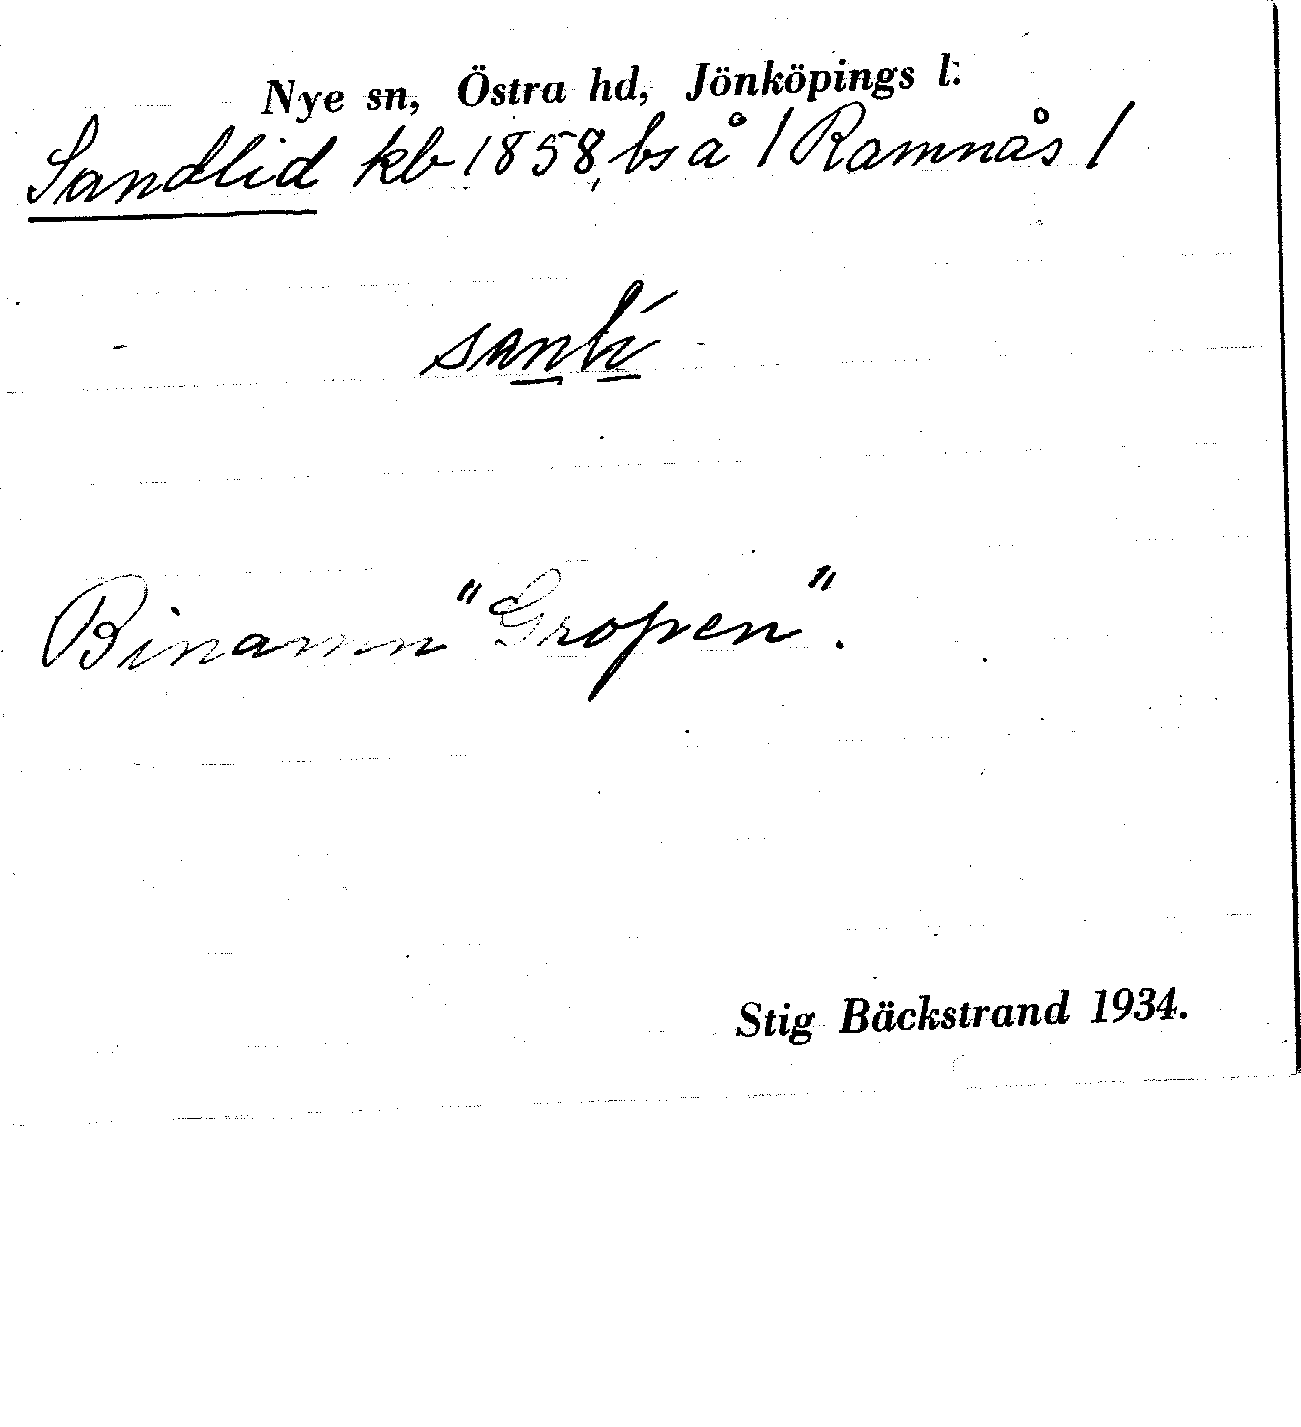 Nye sn, Östra hd, Jönköpings l:
Sandlid kb 1858, bs å / Ramnås /
sanlí
Binamn "Gropen".
Stig Bäckstrand 1934.